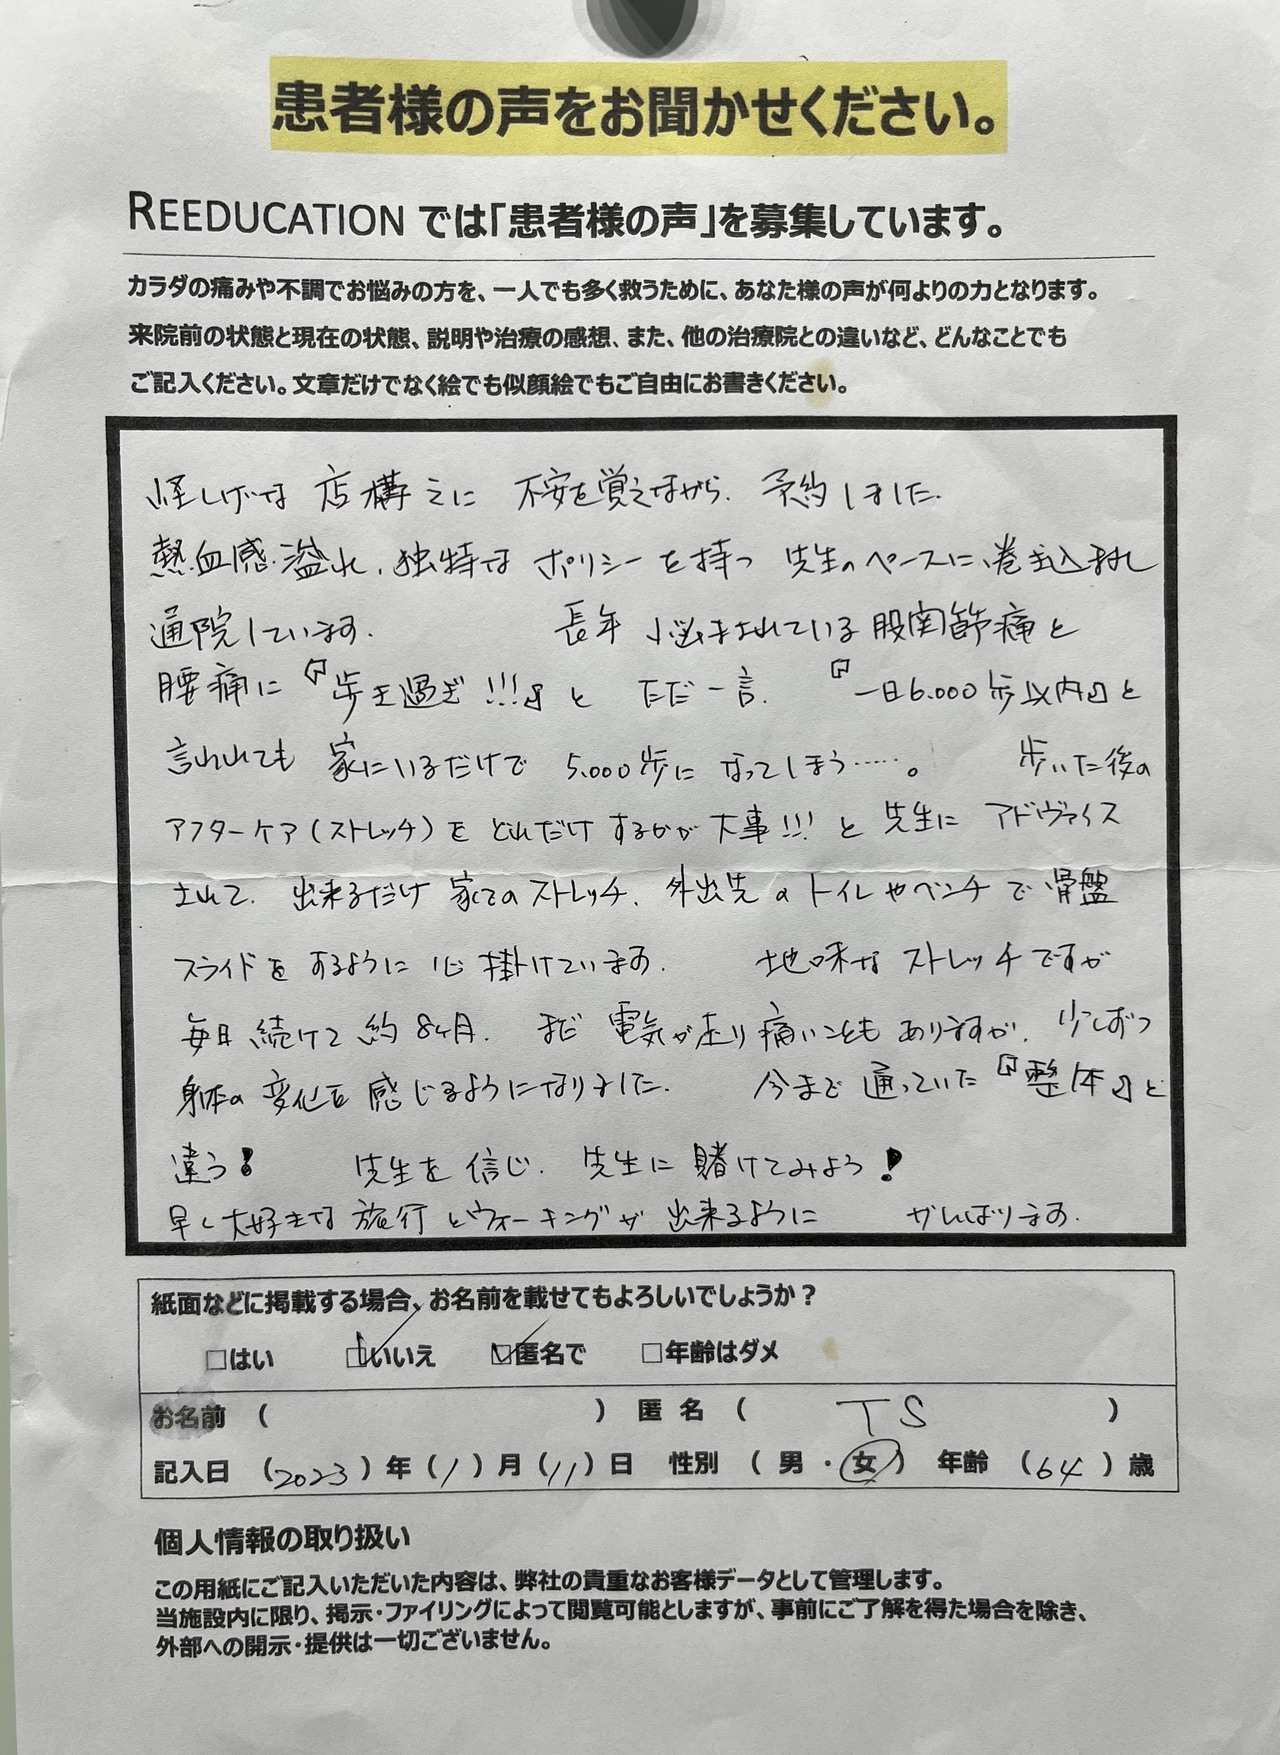 患者様の声をお聞かせください。
REEDUCATION では「患者様の声」を募集しています。
カラダの痛みや不調でお悩みの方を、一人でも多く救うために、あなた様の声が何よりの力となります。
来院前の状態と現在の状態、説明や治療の感想、また、他の治療院との違いなど、どんなことでも
ご記入ください。文章だけでなく絵でも似顔絵でもご自由にお書きください。
怪しげな 店構えに 不安を覚えながら、予約しました。
熱血感溢れ、独特な ポリシーを持つ 先生のペースに、巻き込まれ
通院しています。 長年 悩まされている股関節痛と
腰痛に『歩き過ぎ!!!』と ただ一言。『一日6.000歩以内』と
言われても 家にいるだけで 5.000歩に なってしまう……。 歩いた後の
アフターケア(ストレッチ)を どれだけするかが 大事!!! と 先生に アドヴァイス
されて、出来るだけ 家でのストレッチ、外出先のトイレやベンチで 骨盤
スライドを するように 心掛けています。 地味な ストレッチですが
毎日 続けて 約8ヶ月。 まだ 電気が走り痛いことも ありますが、少しずつ
身体の 変化を 感じるようになりました。 今まで 通っていた『整体』と
違う! 先生を 信じ、先生に 賭けてみよう!
早く大好きな 旅行 とウォーキングが 出来るように がんばります。
紙面などに掲載する場合、お名前を載せてもよろしいでしょうか?
□はい ☑いいえ ☑匿名で □年齢はダメ
お名前 ( ) 匿名 ( TS )
記入日 (2023)年(1)月(11)日 性別 (男・女) 年齢 (64)歳
個人情報の取り扱い
この用紙にご記入いただいた内容は、弊社の貴重なお客様データとして管理します。
当施設内に限り、掲示・ファイリングによって閲覧可能としますが、事前にご了解を得た場合を除き、
外部への開示・提供は一切ございません。